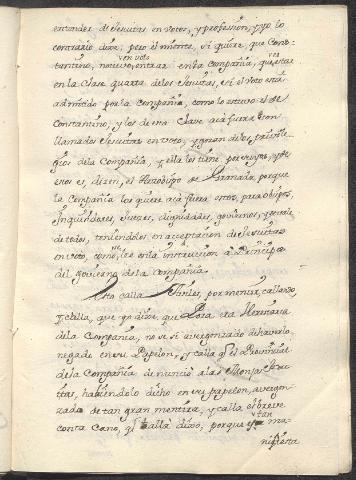 entender de Jesuitas en votos, y profesion, y yo lo
contrario dixe; pero el miente, si quiere, que Cons-
tantino, no tuvo voto, entrar en la Compañia, que
en la clase quarta de los Jesuitas, si el voto está
admitido por la Compañia, como lo estuvo el de
Constantino, y los de esa clase acá fuera son
llamados Jesuitas en voto, y gozan de los privile-
gios de la Compañia, y ella los tiene por suyos, y de
estos es, dizen, el Arzobispo de Granada, porque
la Compañia los quiere acá fuera estos, para obispos,
Inquisidores, Juezes, dignidades, goviernos, y
de todos, teniendolos en acceptacion de Jesuitas
en voto, como se lee en la instruccion a Principes
del govierno de la Compañia.
Esto calla por mentir, callando,
y calla, que yo dixe, que Rosa era Hermana
de la Compañia, no se si avergonzado de haverlo
negado en su Papelon, y calla q.e el Provincial
de la Compañia denunció a las Monjas Jesui-
tas, habiendolo dicho en su papelon, avergon-
zado de tan gran mentira, y calla el breve
contra Cano, q.e allá dixo, porque es tan ma-
nifiesta